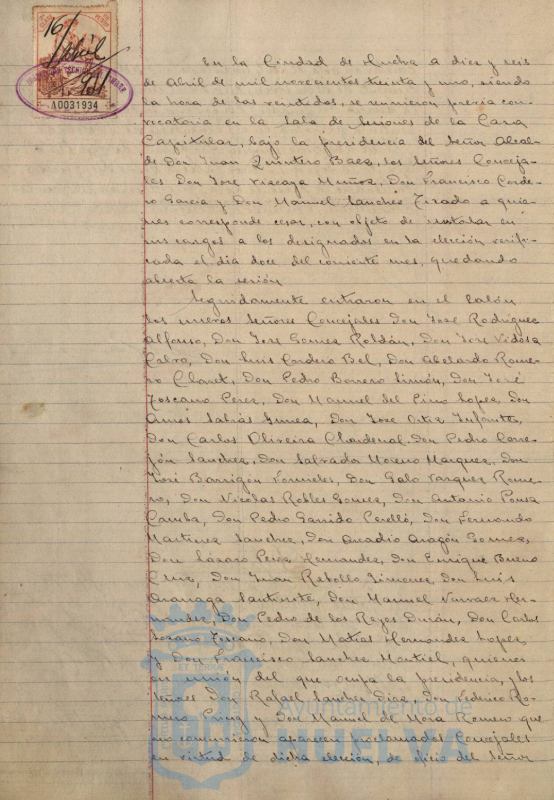 16/
Abril
931
A0031934
En la Ciudad de Huelva a diez y seis
de Abril de mil novecientos treinta y uno, siendo
la hora de las veintidos, se reunieron previa con-
vocatoria en la Sala de Sesiones de la Casa
Capitular, bajo la presidencia del Señor Alcal-
de Don Juan Quintero Baez, los Señores Conceja-
les Don José Vizcaya Muñoz, Don Francisco Corde-
ro Garcia y Don Manuel Sanchez Tirado a quie-
nes corresponde cesar, con objeto de instalar en
sus cargos a los designados en la elección verifi-
cada el dia doce del corriente mes, quedando
abierta la sesión
Seguidamente entraron en el Salón
los nuevos Señores Concejales Don José Rodriguez
Alfonso, Don José Gomez Roldán, Don José Vidosa
Calvo, Don Luis Cordero Bel, Don Abelardo Rome-
ro Claret, Don Pedro Borrero Limón, Don José
Toscano Perez, Don Manuel del Pino Lopez, Don
Amós Sabrás Gurrea, Don José Ortiz Infante,
Don Carlos Oliveira Chardenal, Don Pedro Corre-
jón Sanchez, Don Salvador Moreno Marquez, Don
José Barrigón Fornieles, Don Galo Vazquez Rome-
ro, Don Nicolas Robles Gomez, Don Antonio Pousa
Camba, Don Pedro Garrido Perelló, Don Fernando
Martinez Sanchez, Don Arcadio Aragón Gomez,
Don Lázaro Perez Hernandez, Don Enrique Bueno
Cruz, Don Juan Rebollo Jimenez, Don Luis
Oranaga Santiuste, Don Manuel Narvaez Her-
nandez, Don Pedro de los Reyes Durán, Don Carlos
Lozano Toscano, Don Matías Hernandez Lopez,
y Don Francisco Sanchez Montiel, quienes
en unión del que ocupa la presidencia, y los
Señores Don Rafael Sanchez Diaz, Don Federico Ro-
mero Pruny y Don Manuel de Mora Romero que
no concurrieron aparecen proclamados Concejales
en virtud de dicha elección, de oficio del Señor
Ayuntamiento de
HUELVA